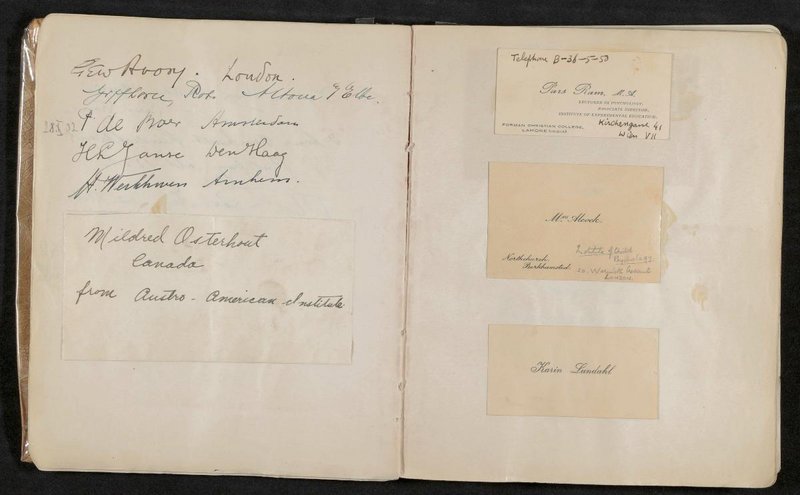 London.
Altona / Elbe.
28 X 32
P de Boer Amsterdam
H L Janse Den Haag
H. Werkhoven Arnhem.
Mildred Osterhout
Canada
from Austro-American Institute
Telephone B-36-5-53
Pars Ram, M.A.
LECTURER IN PSYCHOLOGY,
ASSOCIATE DIRECTOR,
INSTITUTE OF EXPERIMENTAL EDUCATION,
FORMAN CHRISTIAN COLLEGE,
LAHORE (INDIA)
Kirchengasse 41
Wien VII
Mrs Alcock.
Northchurch.
Berkhamsted.
Institute of Child
Psychology.
26. Warwick Avenue
London.
Karin Lundahl